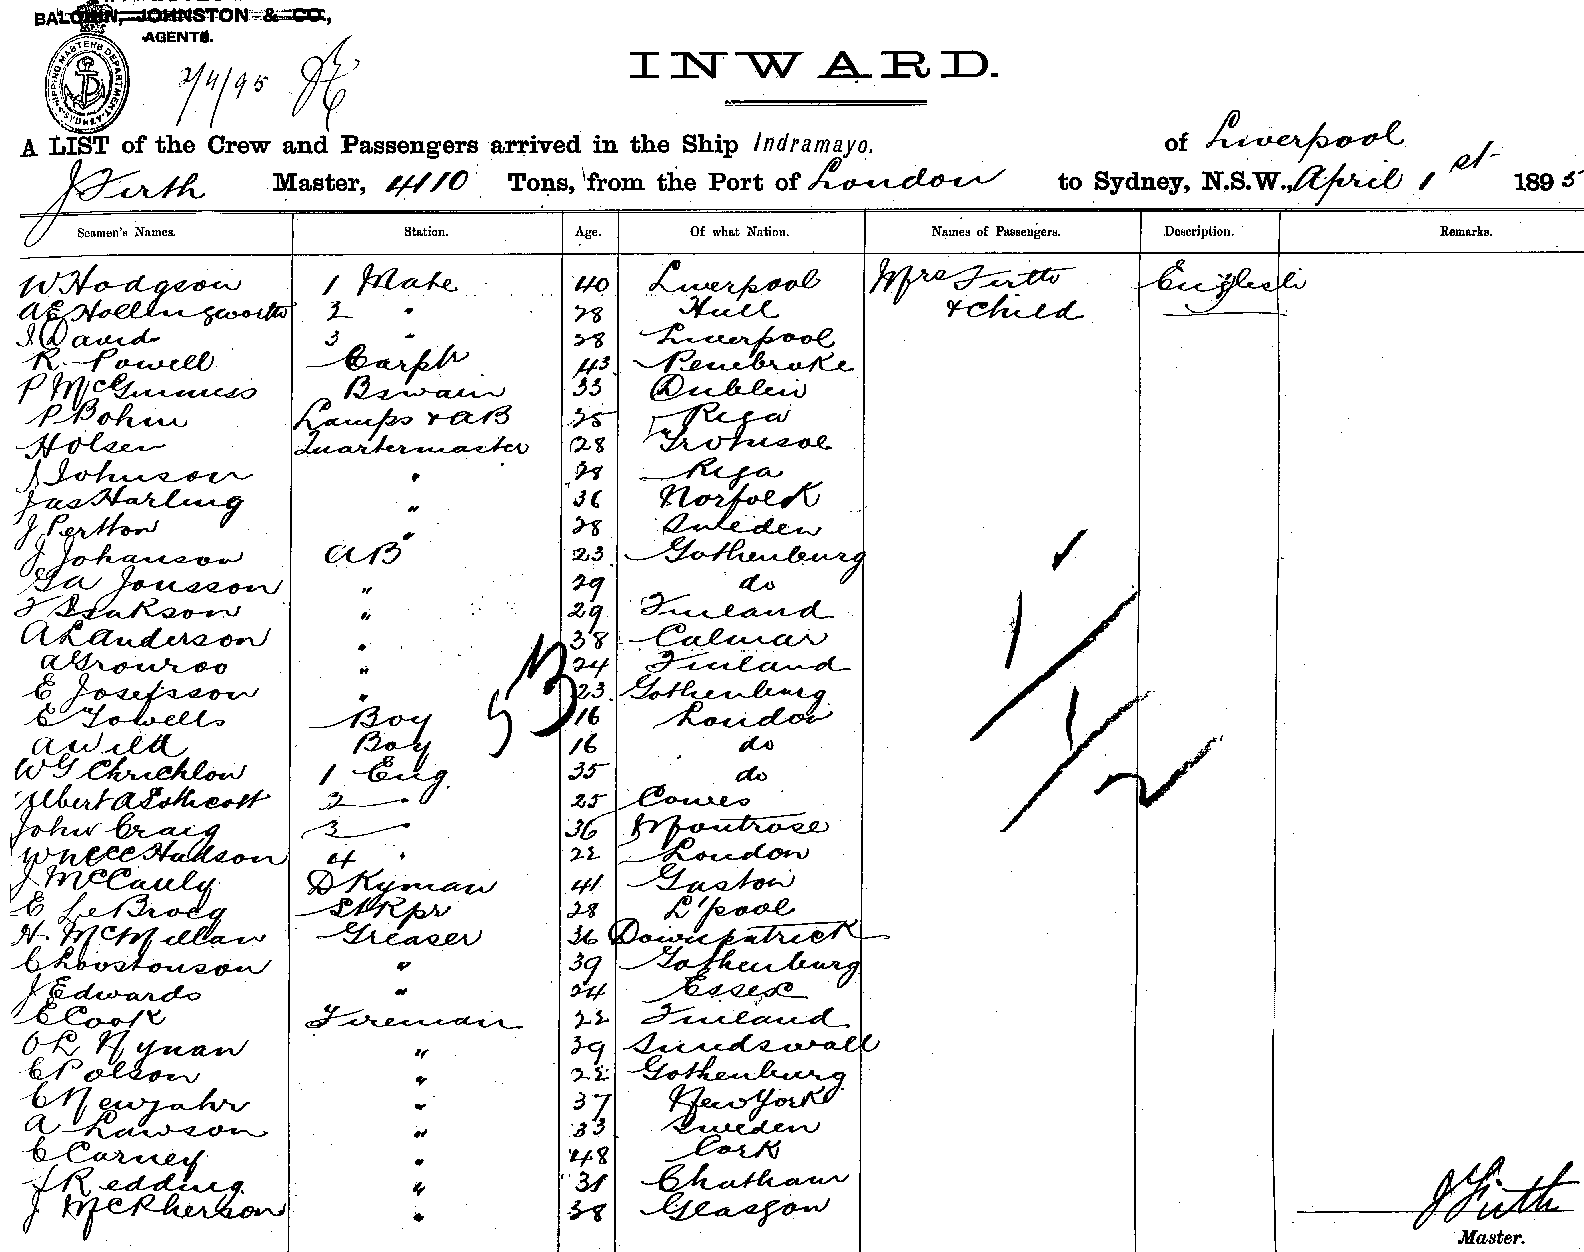 BALCHIN, JOHNSTON & CO.,
AGENTS.
SHIPPING MASTERS DEPARTMENT SYDNEY
2/4/95
INWARD.
A LIST of the Crew and Passengers arrived in the Ship Indramayo. of Liverpool
J Firth Master, 4110 Tons, from the Port of London to Sydney, N.S.W., April 1st 1895
Seamen's Names. Station. Age. Of what Nation. Names of Passengers. Description. Remarks.
W Hodgson 1 Mate 40 Liverpool Mrs Firth English
A E Hollingworth 2 " 28 Hull & Child
J David 3 " 28 Liverpool
R. Powell Carptr 43 Pembroke
P McGuinness Bswain 33 Dublin
P Bohm Lamps & AB 25 Riga
Holsen Quartermaster 28 Tromsoe
J Johnson " 28 Riga
Jas Harling " 36 Norfolk
J Pertton " 28 Sweden
J Johanson AB 23 Gothenburg
G A Jonsson " 29 do
Isakson " 29 Finland
A L Anderson " 38 Calmar
A Grouroo " 24 Finland
E Josefsson " 23 Gothenburg
E Towells Boy 16 London
A Wild Boy 16 do
W G Chrichton 1 Eng. 35 do
Albert A Lothcott 2 " 25 Cowes
John Craig 3 " 36 Montrose
Hudson 4 " 22 London
J McCauly D Kyman 41 Gaston
E Le Brocq StKpr 28 L'pool
H. McMillan Greaser 36 Downpatrick
C Loostonson " 39 Gothenburg
J Edwards " 24 Essex
E Cook Fireman 22 Finland
O L Nyman " 39 Sundswall
C Polson " 22 Gothenburg
C Newjahr " 37 New York
A Lawson " 33 Sweden
C Carney " 48 Cork
J Redding " 31 Chatham
J McPherson " 38 Glasgow
53
J Firth
Master.